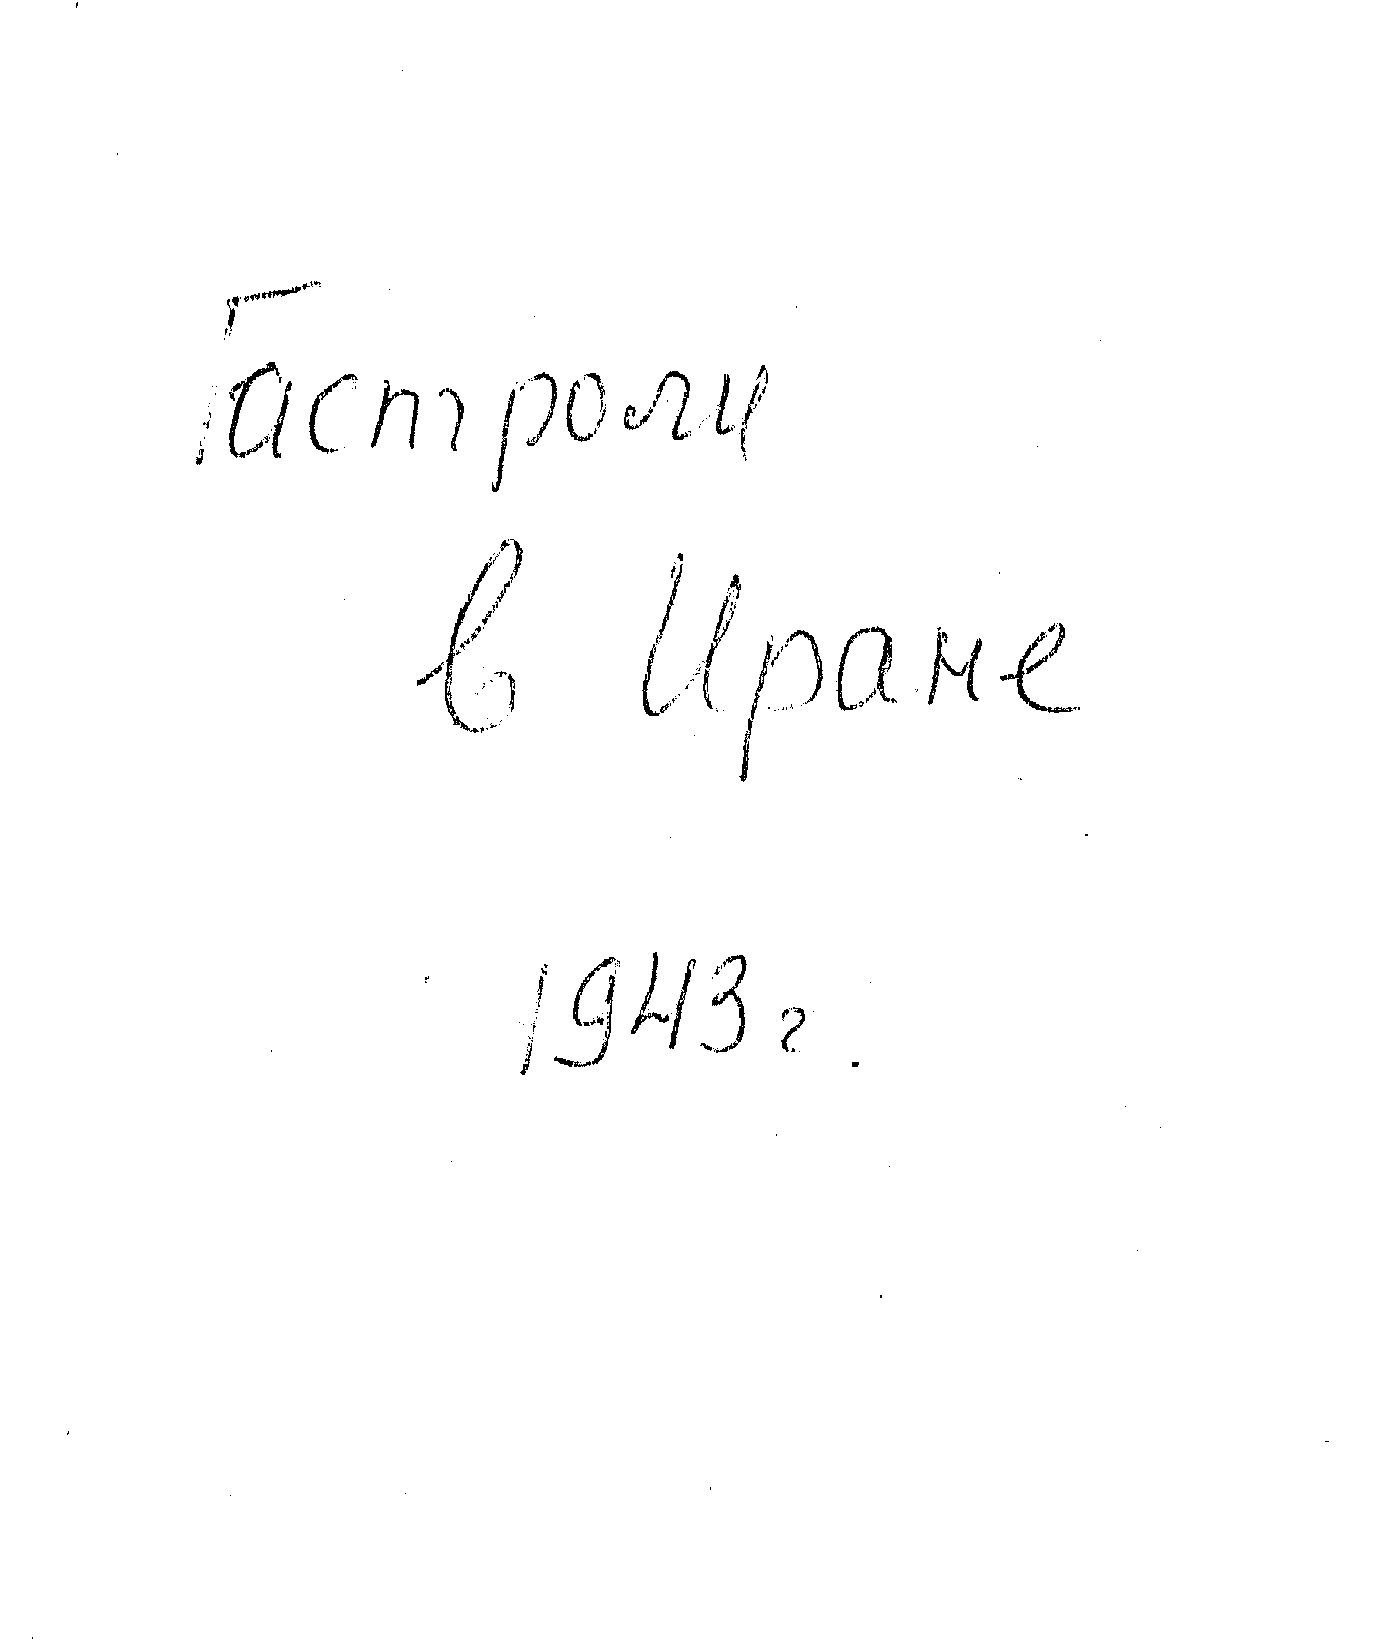 Гастроли
в Иране
1943 г.